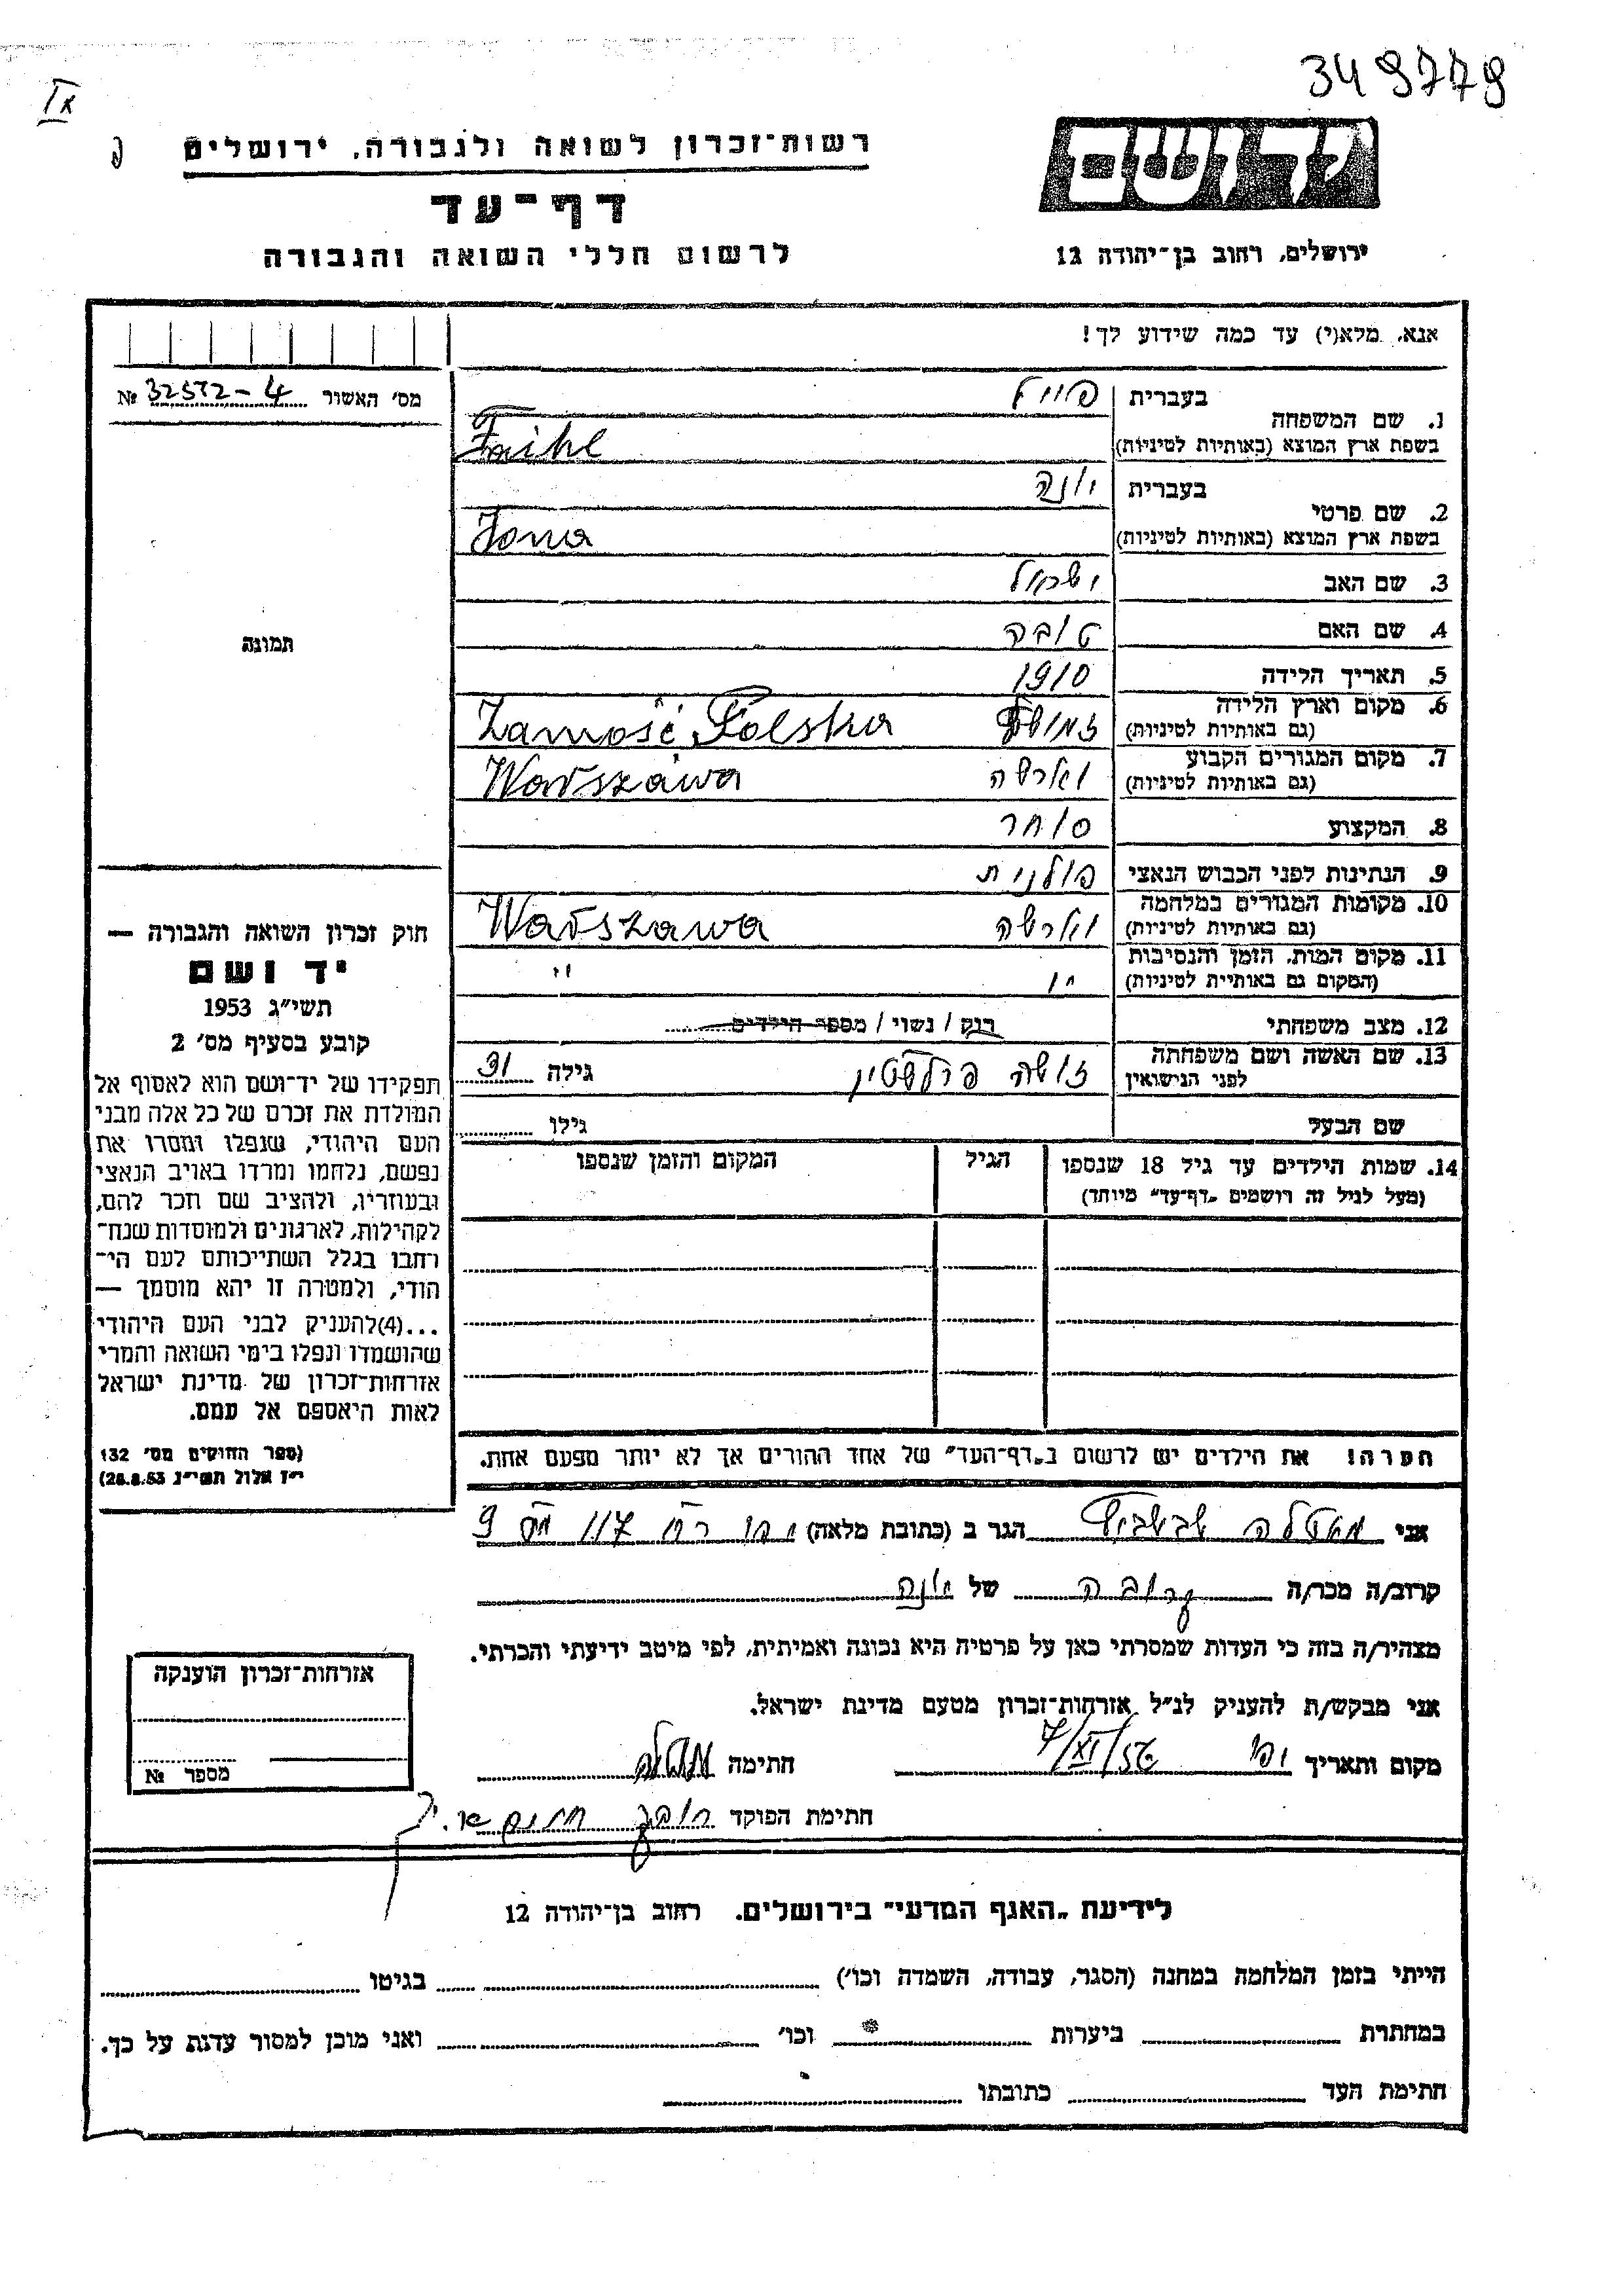 349779
רשות־זכרון לשואה ולגבורה, ירושלים
יד ושם
דף־עד
לרשום חללי השואה והגבורה
ירושלים, רחוב בן־יהודה 12
אנא, מלא(י) עד כמה שידוע לך!
מס׳ האשור 32572-4 №
1. שם המשפחה בעברית
בשפת ארץ המוצא (באותיות לטיניות)
2. שם פרטי בעברית יונה
בשפת ארץ המוצא (באותיות לטיניות) Jona
3. שם האב
4. שם האם טובה
5. תאריך הלידה 1910
6. מקום וארץ הלידה Zamość Polska
(גם באותיות לטיניות)
7. מקום המגורים הקבוע וארשה Warszawa
(גם באותיות לטיניות)
8. המקצוע סוחר
9. הנתינות לפני הכבוש הנאצי פולנית
10. מקומות המגורים במלחמה וארשה Warszawa
(גם באותיות לטיניות)
11. מקום המות, הזמן והנסיבות
(המקום גם באותיית לטיניות)
12. מצב משפחתי רוק / נשוי / מספר הילדים
13. שם האשה ושם משפחתה גילה 31
לפני הנישואין
שם הבעל גילו
14. שמות הילדים עד גיל 18 שנספו הגיל המקום והזמן שנספו
(מעל לגיל זה רושמים „דף־עד״ מיוחד)
תמונה
חוק זכרון השואה והגבורה —
יד ושם
תשי״ג 1953
קובע בסעיף מס׳ 2
תפקידו של יד־ושם הוא לאסוף אל
המולדת את זכרם של כל אלה מבני
העם היהודי, שנפלו ומסרו את
נפשם, נלחמו ומרדו באויב הנאצי
ובעוזריו, ולהציב שם וזכר להם,
לקהילות, לארגונים ולמוסדות שנח־
רחבו בגלל השתייכותם לעם הי־
הודי, ולמטרה זו יהא מוסמך —
...(4)להעניק לבני העם היהודי
שהושמדו ונפלו בימי השואה והמרי
אזרחות־זכרון של מדינת ישראל
לאות היאספם אל עמם.
(ספר החוקים מס׳ 132
י״ז אלול תשי״ג 28.8.53)
הערה! את הילדים יש לרשום ב„דף־העד״ של אחד ההורים אך לא יותר מפעם אחת.
אני הגר ב (כתובת מלאה)
קרוב/ה מכר/ה קרובה של יונה
מצהיר/ה בזה כי העדות שמסרתי כאן על פרטיה היא נכונה ואמיתית, לפי מיטב ידיעתי והכרתי.
אני מבקש/ת להעניק לנ״ל אזרחות־זכרון מטעם מדינת ישראל.
מקום ותאריך יפו 7/XI/56 חתימה
חתימת הפוקד
אזרחות־זכרון הוענקה
מספר №
לידיעת „האגף המדעי״ בירושלים. רחוב בן־יהודה 12
הייתי בזמן המלחמה במחנה (הסגר, עבודה, השמדה וכו׳) בגיטו
במחתרת ביערות וכו׳ ואני מוכן למסור עדות על כך.
חתימת העד כתובתו